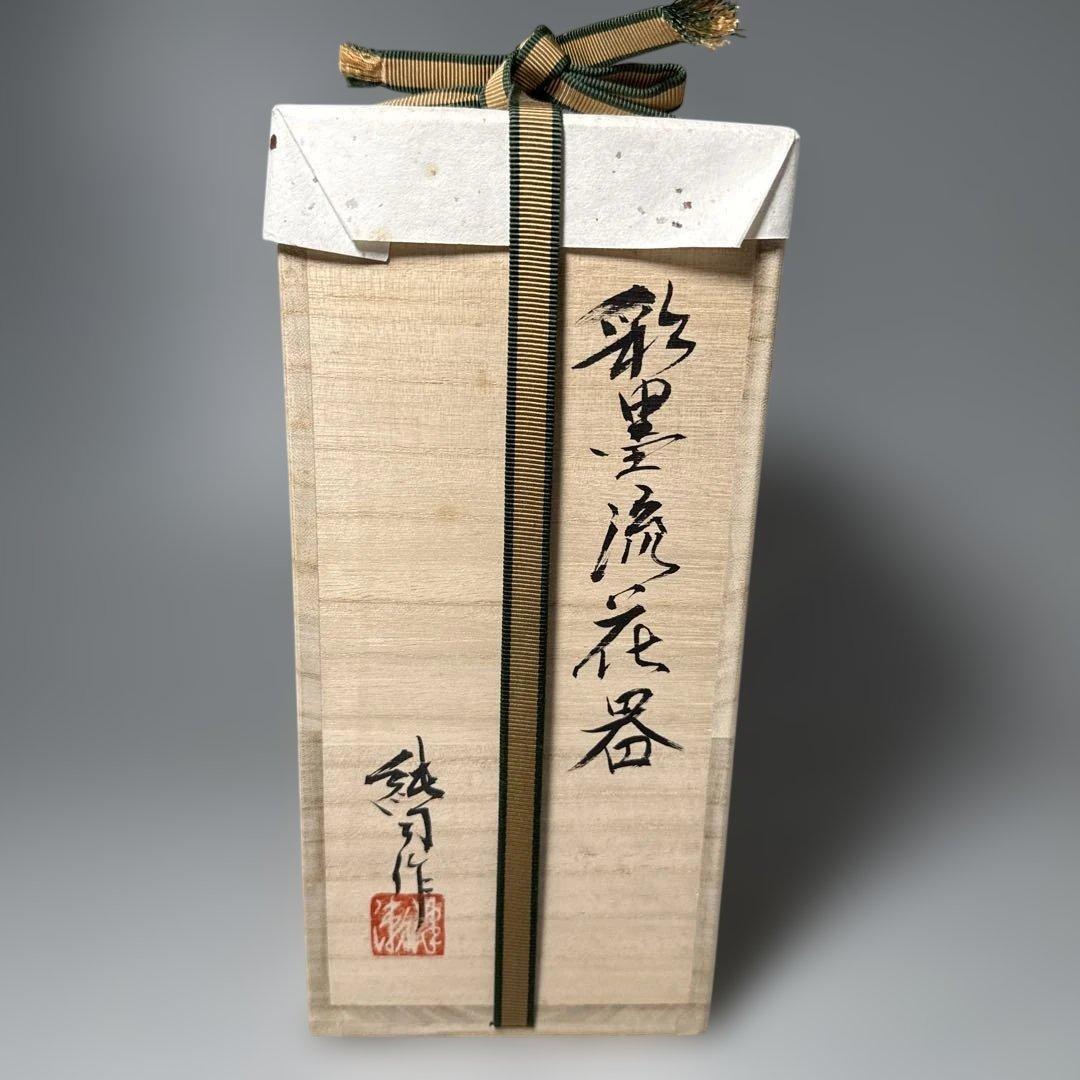 彩墨流花器
純司作